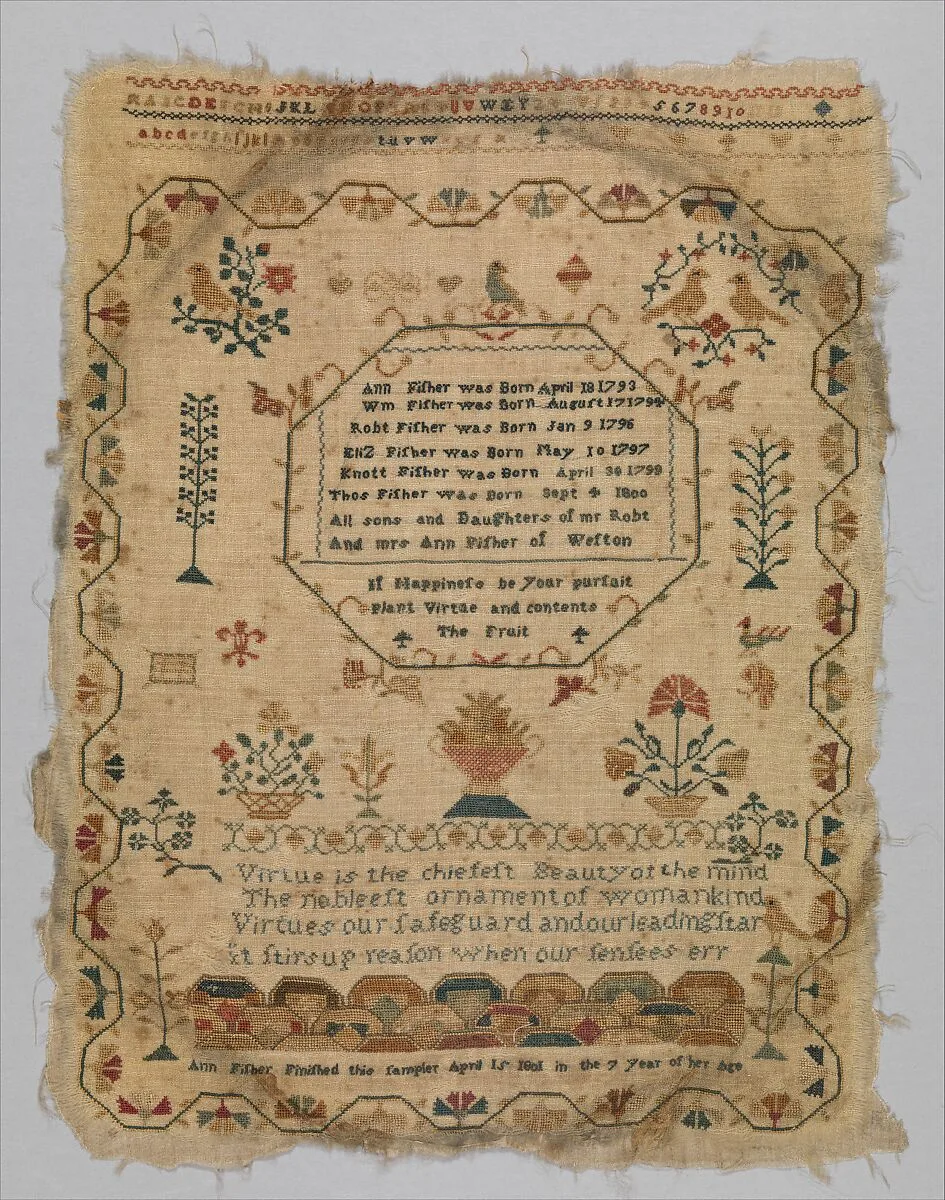 ABCDEFGHIJKL OP UVWXY 5 6 7 8 9 10
abcdefghijkl tuvw
Ann Fiſher was Born April 18 1793
Wm Fiſher was Born Auguſt 17 1794
Robt Fiſher was Born Jan 9 1796
EliZ Fiſher was Born May 10 1797
Knott Fiſher was Born April 30 1799
Thos Fiſher was Born Sept 4 1800
All sons and Daughters of mr Robt
And mrs Ann Fiſher of Weſton
If Happineſs be your purſait
Plant Virtue and contents
The Fruit
Virtue is the chiefeſt Beauty of the mind
The nobleeſt ornament of womankind
Virtues our ſafeguard and our leading ſtar
It ſtirs up reaſon when our ſenſees err
Ann Fiſher Finiſhed this ſampler April 15 1801 in the 7 year of her Age